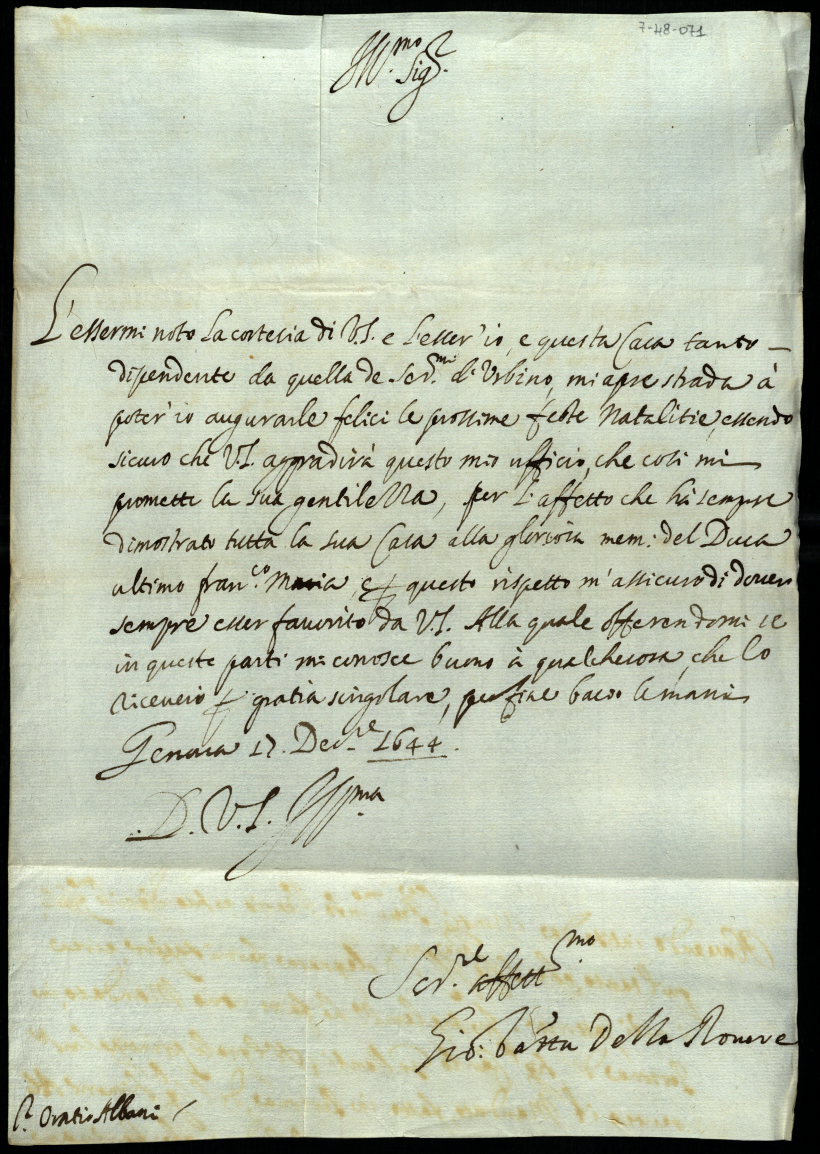 7-48-071
Ill.mo Sig.r
L'essermi noto la cortesia di V.S. e l'esser'io, e questa Casa tanto
dipendente da quella de Ser.mi d'Urbino, mi apre strada à
poter'io augurarle felici le prossime feste Natalitie, essendo
sicuro che V.S. aggradirà questo mio ufficio, che così mi
promette la sua gentilezza, per l'affetto che hà sempre
dimostrato tutta la sua Casa alla gloriosa mem: del Duca
ultimo fran.co Maria, e questo rispetto m'assicuro di dover
sempre esser favorito da V.S. Alla quale offerendomi se
in queste parti mi conosce buono à qualchecosa, che lo
riceverò gratia singolare, per fine bacio le mani
Genova 17. Dec.re 1644.
D. V. S. Ill.ma
Ser.re affett.mo
Gio: Batta Della Rovere
S.r Oratio Albani